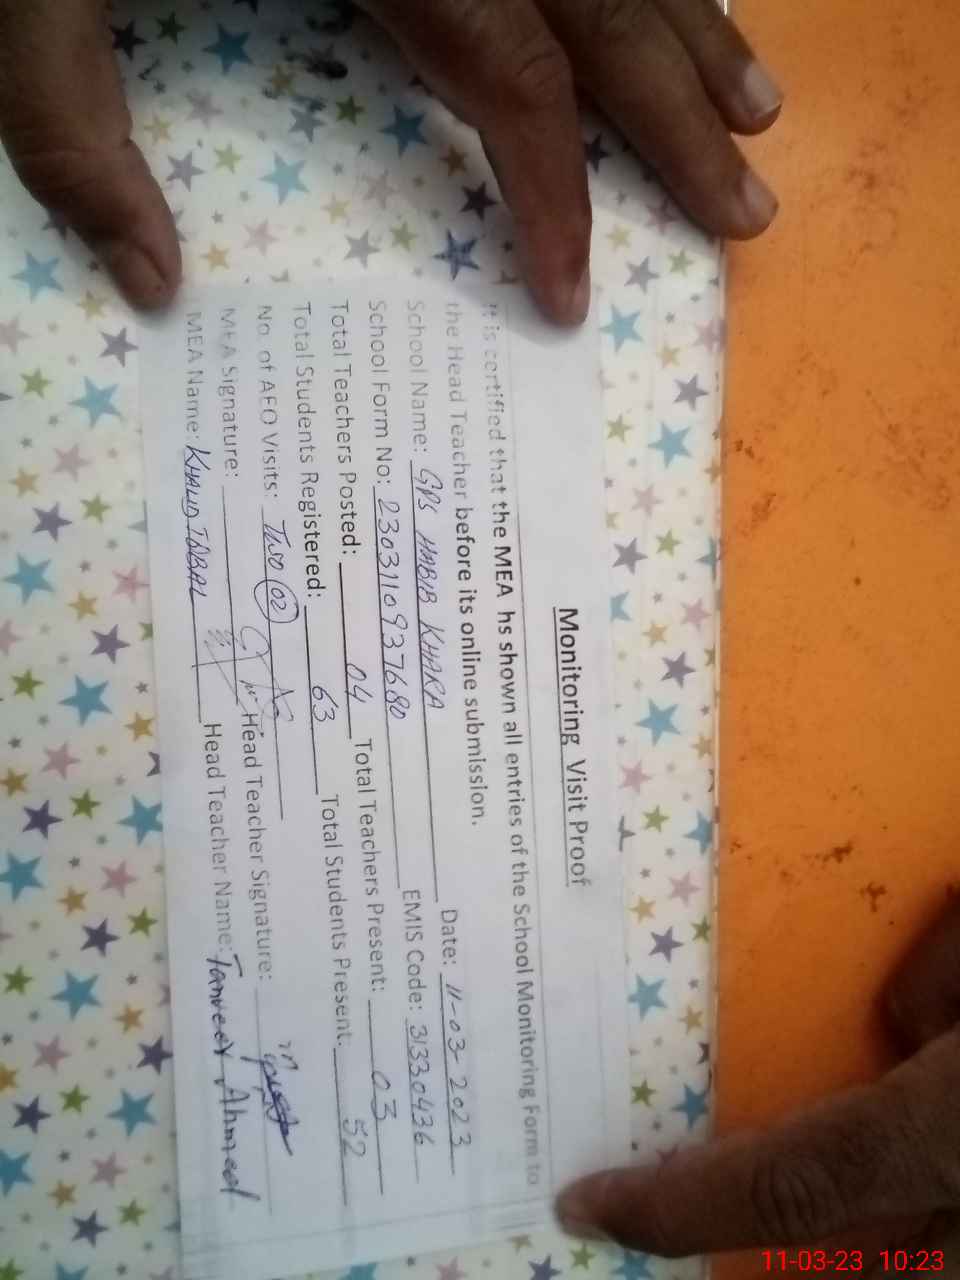 Monitoring Visit Proof
It is certified that the MEA hs shown all entries of the School Monitoring Form to
the Head Teacher before its online submission.
School Name: GPS HABIB KHARA Date: 11-03-2023
School Form No: 2303110937680 EMIS Code: 31330436
Total Teachers Posted: 04 Total Teachers Present: 03
Total Students Registered: 63 Total Students Present: 52
No. of AEO Visits: Two (02)
MEA Signature: Head Teacher Signature:
MEA Name: KHALID IQBAL Head Teacher Name: Tanveer Ahmed
11-03-23 10:23